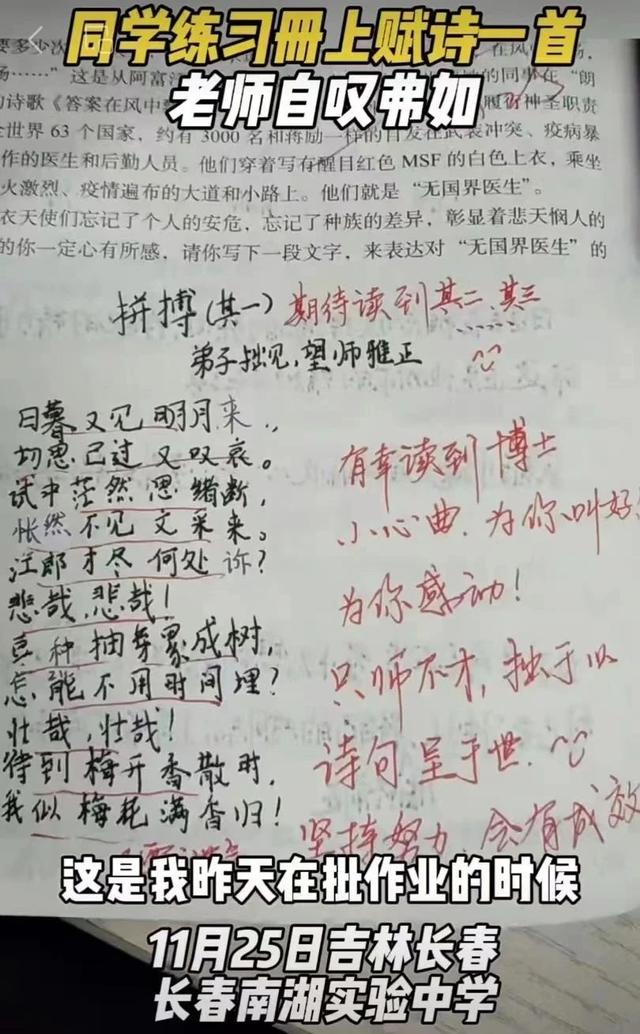 同学练习册上赋诗一首
老师自叹弗如
场……”这是从阿富
的同事在“朗
诗歌《答案在风中
神圣职责
全世界 63 个国家，约有 3000 名和蒋励一样的
冲突、疫病暴
作的医生和后勤人员。他们穿着写有醒目红色 MSF 的白色上衣，乘坐
火激烈、疫情遍布的大道和小路上。他们就是“无国界医生”。
衣天使们忘记了个人的安危，忘记了种族的差异，彰显着悲天悯人的
的你一定心有所感，请你写下一段文字，来表达对“无国界医生”的
拼搏(其一) 期待读到其二 其三
弟子拙见,望师雅正
日暮又见明月来.,
切思己过又叹哀。
试中茫然思绪断,
怅然不见文采来。
江郎才尽何处诉?
悲哉,悲哉!
真种抽芽冢成树,
怎能不用时间埋?
壮哉,壮哉!
待到梅开香散时,
我似梅花满香归!
有幸读到博士
小心曲.为你叫好
为你感动!
只师不才,拙于以
诗句呈于世.
坚持努力,会有成效
这是我昨天在批作业的时候
11月25日吉林长春
长春南湖实验中学